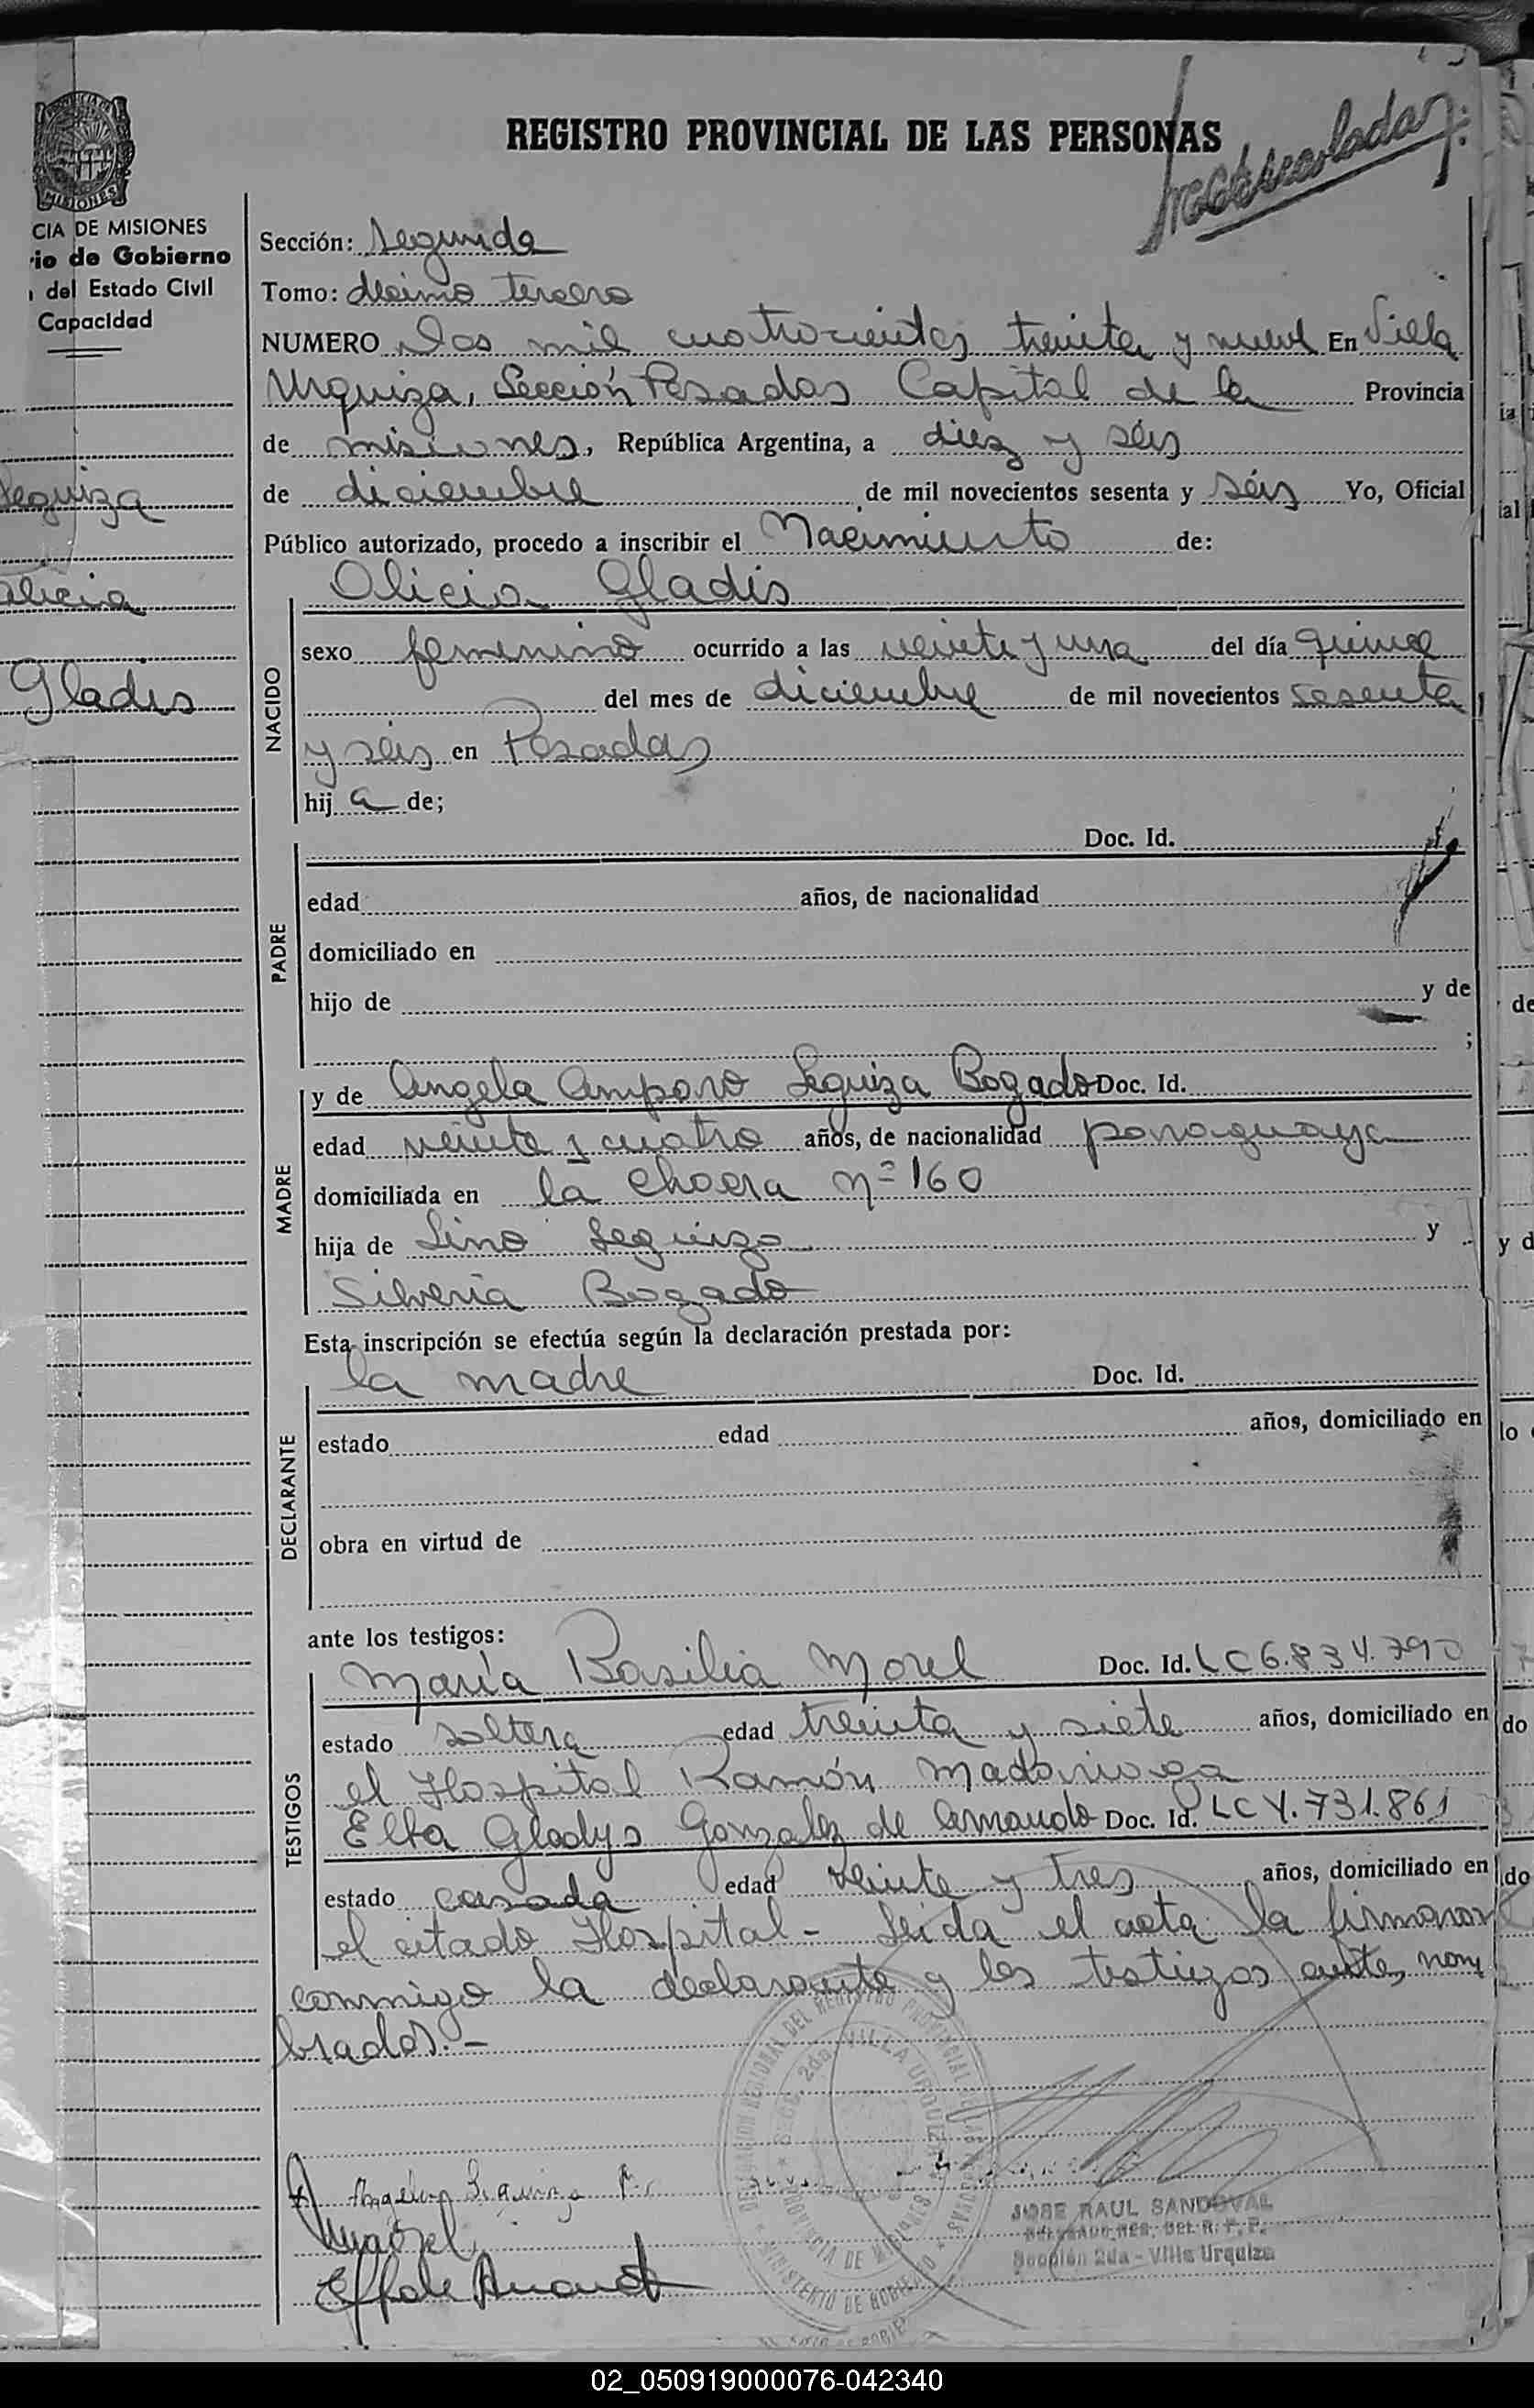 REGISTRO PROVINCIAL DE LAS PERSONAS
MISIONES
CIA DE MISIONES
rio de Gobierno
del Estado Civil
Capacidad
Seguiza
Alicia
Gladis
Sección: Segunda
Tomo: décimo tercero
NUMERO Dos mil cuatrocientos treinta y nueve En Villa
Urquiza, Sección Posadas Capital de la Provincia
de misiones, República Argentina, a diez y séis
de diciembre de mil novecientos sesenta y séis Yo, Oficial
Público autorizado, procedo a inscribir el Nacimiento de:
Alicia Gladis
NACIDO
sexo femenino ocurrido a las veinte y una del día quince
del mes de diciembre de mil novecientos sesenta
y séis en Posadas
hij a de;
PADRE
Doc. Id.
edad años, de nacionalidad
domiciliado en
hijo de y de
;
MADRE
y de Angela Amparo Seguiza Bogado Doc. Id.
edad veinte y cuatro años, de nacionalidad paraguaya
domiciliada en la Chacra nº 160
hija de Lino Seguiza y
Silveria Bogado
Esta inscripción se efectúa según la declaración prestada por:
DECLARANTE
la madre Doc. Id.
estado edad años, domiciliado en
obra en virtud de
ante los testigos:
TESTIGOS
María Basilia Morel Doc. Id. LC 6.834.790
estado soltera edad treinta y siete años, domiciliado en
el Hospital Ramón Madariaga
Elba Gladys Gonzalez de Amaudo Doc. Id. LC 4.731.861
estado casada edad veinte y tres años, domiciliado en
el citado Hospital - Leida el acta la firmaron
conmigo la declarante y los testigos antes nom
brados. -
Angela Seguiza
JOSE RAUL SANDOVAL
DELEGADO REG. DEL R. P. P.
Sección 2da - Villa Urquiza
DELEGACION REGIONAL DEL REGISTRO PROVINCIAL DE LAS PERSONAS
SECC. 2da. VILLA URQUIZA
PROVINCIA DE MISIONES
MINISTERIO DE GOBIERNO
02_050919000076-042340